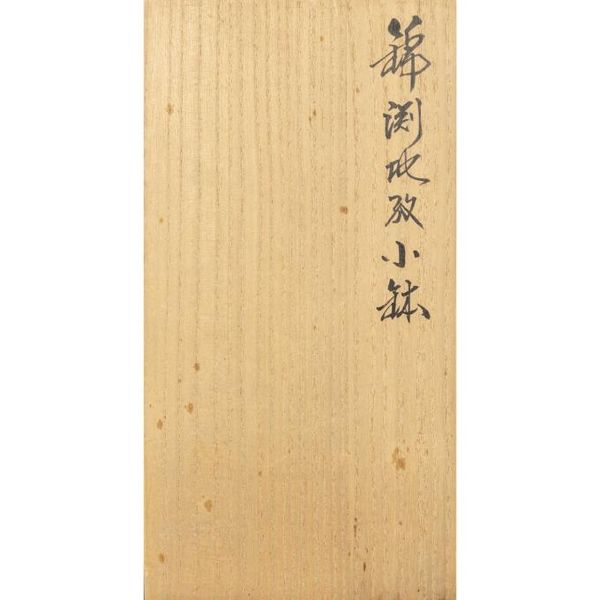 錦渕地紋小鉢